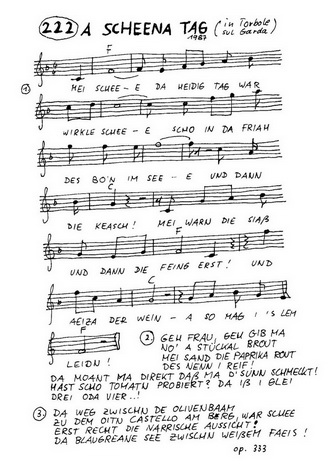 222 A SCHEENA TAG (in Torbole
1987 sul Garda)
F
① MEI SCHEE-E DA HEIDIG TAG WAR
WIRKLE SCHEE-E SCHO IN DA FRIAH
DES BO'N IM SEE-E UND DANN
C
DIE KEASCH! MEI WARN DIE SIAẞ
F
UND DANN DIE FEING ERST! UND
C
AEIZA DER WEIN-A SO MAG I'S LEM
F
LEIDN!
② GEH FRAU, GEH GIB MA
NO' A STÜCKAL BROUT
MEI SAND DIE PAPRIKA ROUT
DES NENN I REIF!
DA MOANT MA DIREKT DAß MA D'SUNN SCHMECKT!
HAST SCHO TOMATN PROBIERT? DA Iß I GLEI
DREI ODA VIER..!
③ DA WEG ZWISCHN DE OLIVENBAAM
ZU DEM OITN CASTELLO AM BERG, WAR SCHEE
ERST RECHT DIE NARRISCHE AUSSICHT!
DA BLAUGREANE SEE ZWISCHN WEIßEM FAEIS!
op. 333